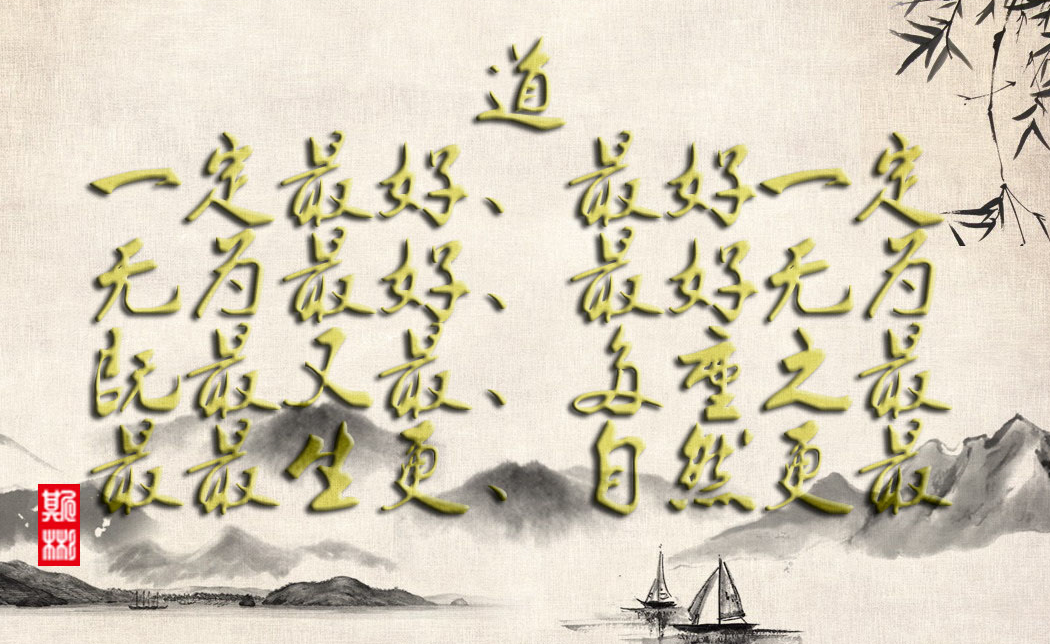 道
一定最好、最好一定
无为最好、最好无为
既最又最、多重之最
最最生更、自然更最
斯彬